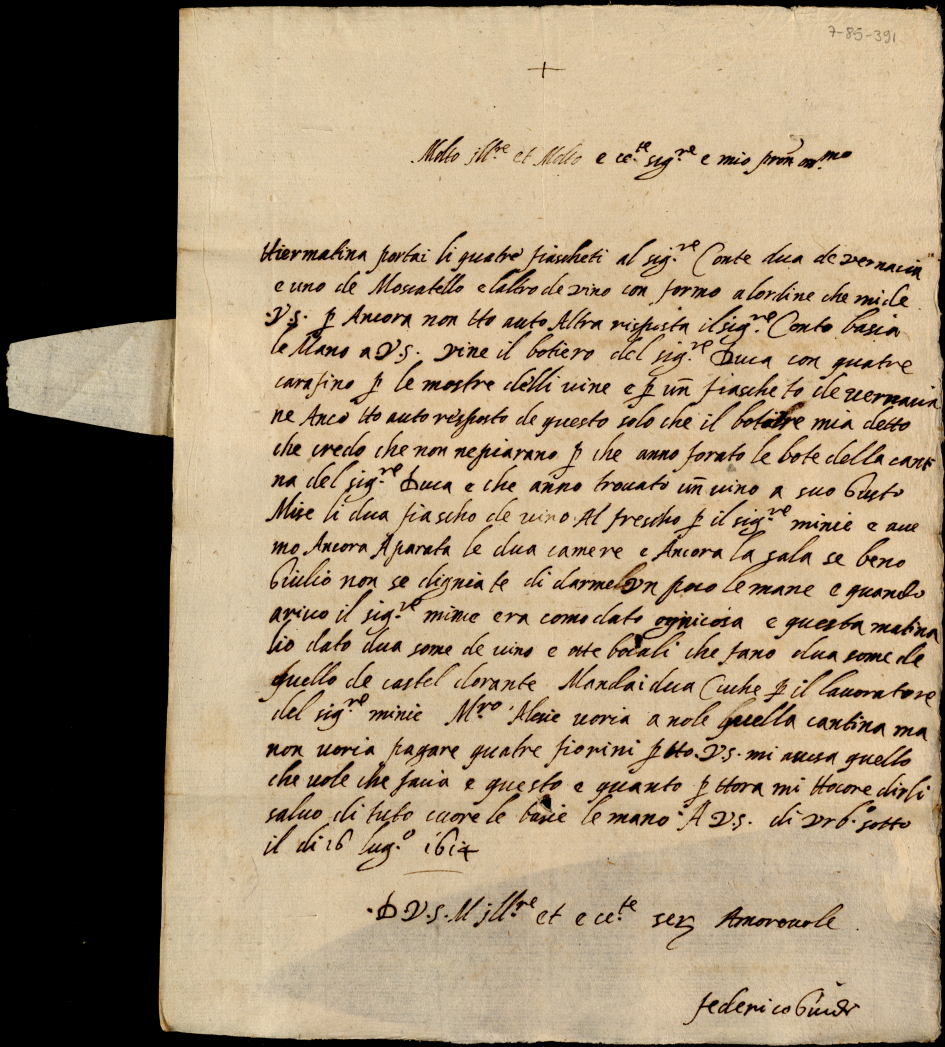 7-85-391
+
Molto Ill.re et Molto e ce.te sig.re e mio pron on.mo
Hiermatina portai li quatre fiascheti al sig.re Conte dua de vernacia
e uno de Moscatello e laltro de vino con formo a lordine che mi de
.V.S. p Ancora non Ho auto Altra risposta il sig.re Conto basia
le Mano a V.S. vine il botiero del sig.re Duca con quatre
carafino p le mostre delli vine e p un fiascheto de vernacia
ne Anco Ho auto resposto de questo solo che il mia detto
che credo che non nepiarano p che anno forato le bote della canti
na del sig.re Duca e che anno trovato un vino a suo Gusto
Mise li dua fiascho de vino Al frescho p il sig.re minie e ave
mo Ancora Aparata le dua camere e Ancora la sala se beno
Giulio non se digniate di darme un poco le mane e quando
arivo il sig.re minie era comodato ognicosa e questa matina
lio dato dua some de vino e otte bocali che fano dua some de
quello de castel dorante Mandai dua p il lavoratore
del sig.re minie M.ro Alesie voria a nole quella cantina ma
non voria pagare quatre fiorini p tto V.S. mi avisa quello
che vole che facia e questo e quanto p Hora mi Hocore dirli
salvo di tuto cuore le basie le mano A V.S. di Urb.o sotto
il di 16 lug.o 1614
.D V.S. M Ill.re et e ce.te ser Amorevole
federico Guidi